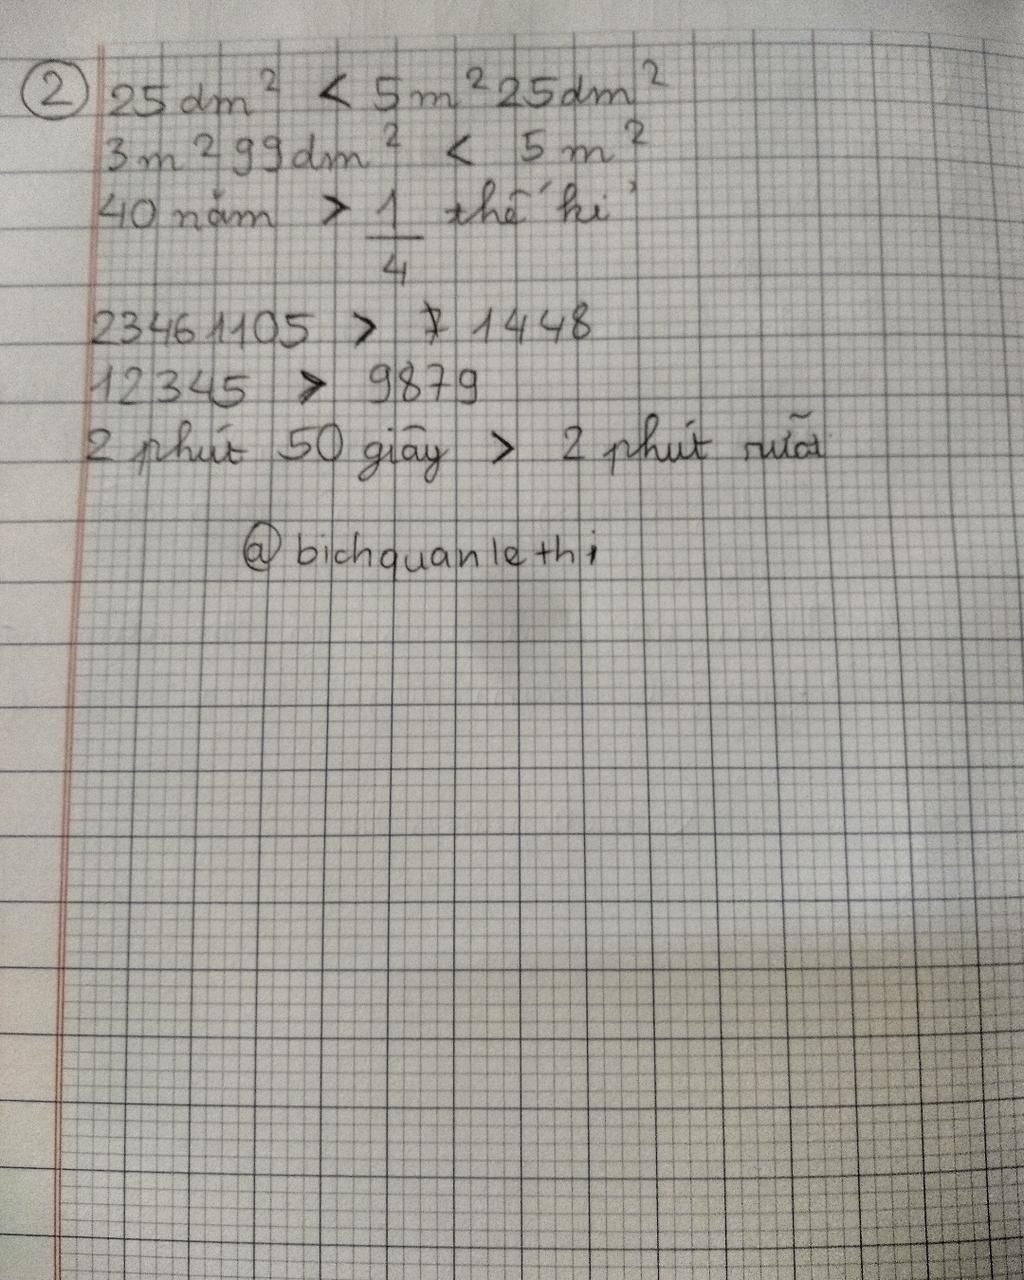 ② 25 dm² < 5 m² 25 dm²
3 m² 99 dm² < 5 m²
40 năm > 1/4 thế kỉ
23461105 > 71448
12345 > 9879
2 phút 50 giây > 2 phút rưỡi
@bichquanlethi